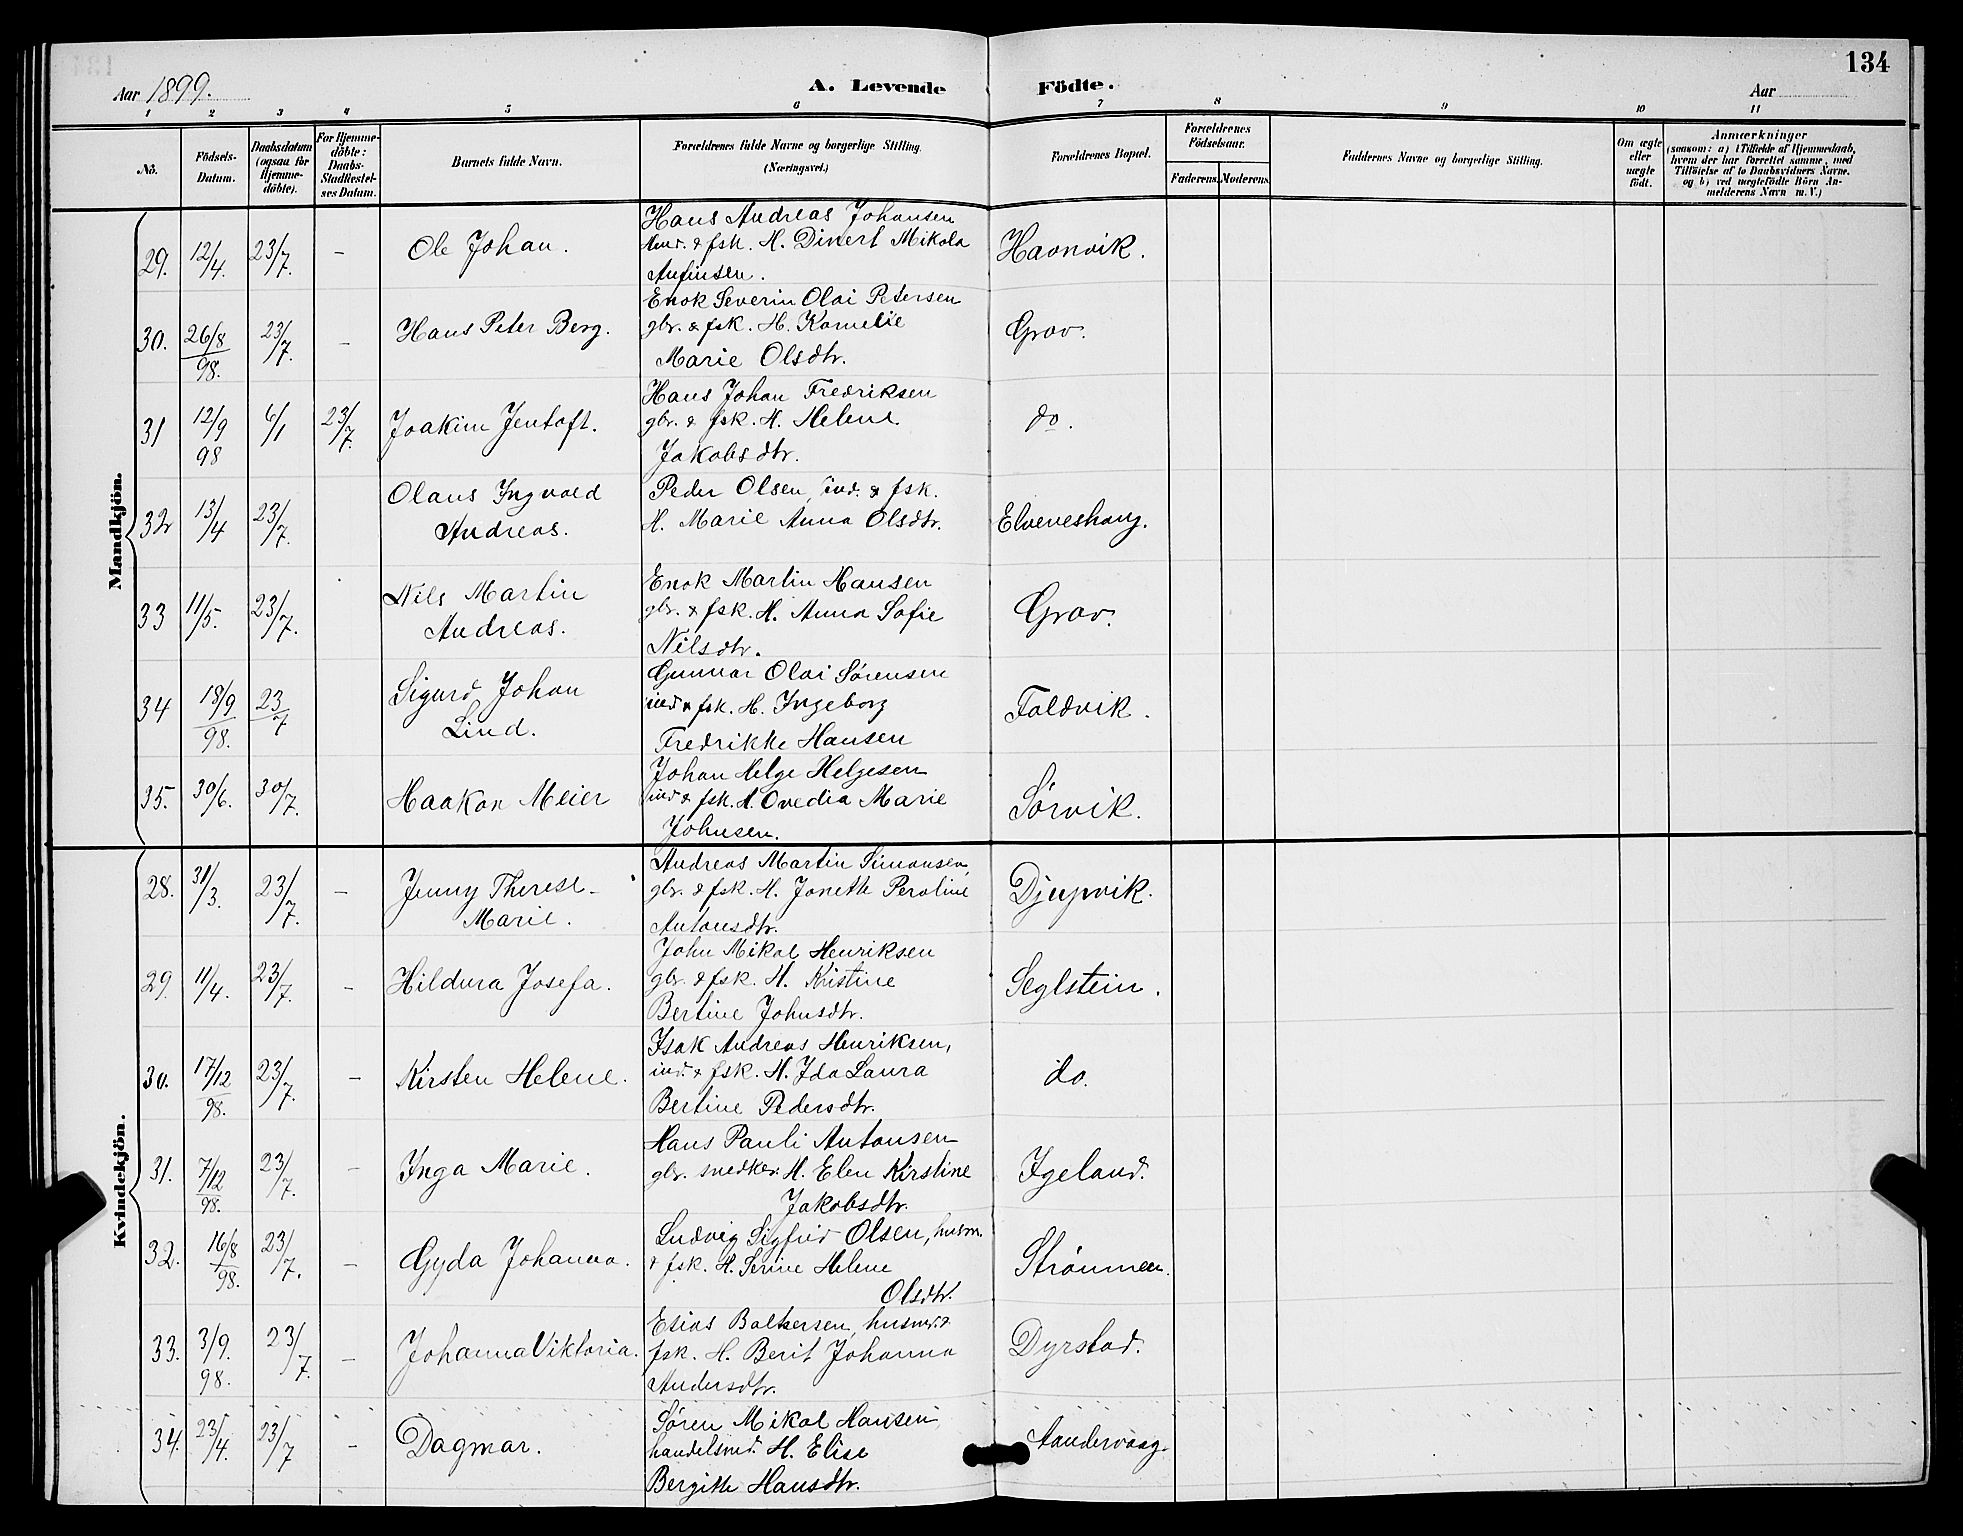 134
Aar 1899.
A. Levende Födte.
Aar
1 2 3 4 5 6 7 8 9 10 11
No.
Födsels-Datum.
Daabsdatum (ogsaa for Hjemmedöbte).
For Hjemmedöbte: Daabs-Stadfestelses Datum.
Barnets fulde Navn.
Forældrenes fulde Navne og borgerlige Stilling.
(Næringsvei.)
Forældrenes Bopæl.
Forældrenes Födselsaar.
Faderens. Moderens.
Faddernes Navne og borgerlige Stilling.
Om ægte eller uægte födt.
Anmærkninger
(saasom: a) i Tilfælde af Hjemmedaab,
hvem der har forrettet samme, med
Tilföielse af to Daabsvidners Navne.
og b) ved uægtefödte Börn An-
melderens Navn m. V.)
Mandkjön.
29. 12/4. 23/7. - Ole Johan. Hans Andreas Johansen
& fsk. H. Dinert Mikola
Anfinsen.
Havnvik.
30. 26/8 98. 23/7. - Hans Peter Berg. Enok Severin Olai Petersen
gbr. & fsk. H. Kornelie
Marie Olsdtr.
Grav.
31 12/9 98 6/1 23/7. Joakim Jentoft. Hans Johan Fredriksen
gbr. & fsk. H. Helene
Jakobsdtr.
do.
32 13/4 23/7. Olaus Ingvald
Andreas.
Peder Olsen, ind. & fsk.
H. Marie Anna Olsdtr.
Elveneshaug.
33 11/5. 23/7. Nils Martin
Andreas.
Enok Martin Hansen
gbr. & fsk. H. Anna Sofie
Nilsdtr.
Grav.
34 18/9 98. 23/7 Sigurd Johan
Lind.
Gunnar Olai Sørensen
ind & fsk. H. Ingeborg
Fredrikke Hansen
Foldvik.
35. 30/6. 30/7. Haakon Meier Johan Helge Helgesen
ind & fsk. H. Ovedia Marie
Johnsen.
Sørvik.
Kvindekjön.
28. 31/3. 23/7. - Jenny Therese
Marie.
Andreas Martin Simonsen,
gbr. & fsk. H. Jonette Peroline
Antonsdtr.
Djupvik.
29. 11/4. 23/7. - Hildura Josefa. John Mikal Henriksen
gbr. & fsk. H. Kristine
Bertine Johnsdtr.
Seglstein.
30. 17/12 98. 23/7. - Kirsten Helene. Isak Andreas Henriksen,
ind. & fsk. H. Ida Laura
Bertine Pedersdtr.
do.
31. 7/12 98. 23/7. - Inga Marie. Hans Pauli Antonsen
gbr. snedker. H. Elen Kirstine
Jakobsdtr.
Igeland.
32. 16/8 98. 23/7. - Gyda Johanna. Ludvig Sigfrid Olsen, husm.
& fsk. H. Serine Helene
Olsdtr.
Strømmen.
33. 3/9. 98. 23/7. - Johanna Viktoria. Esias Baltzersen, husm. &
fsk. H. Berit Johanna
Andersdtr.
Dyrstad.
34. 23/4. 23/7 - Dagmar. Søren Mikal Hansen
handelsmd. H. Elise
Bergitte Hansdtr.